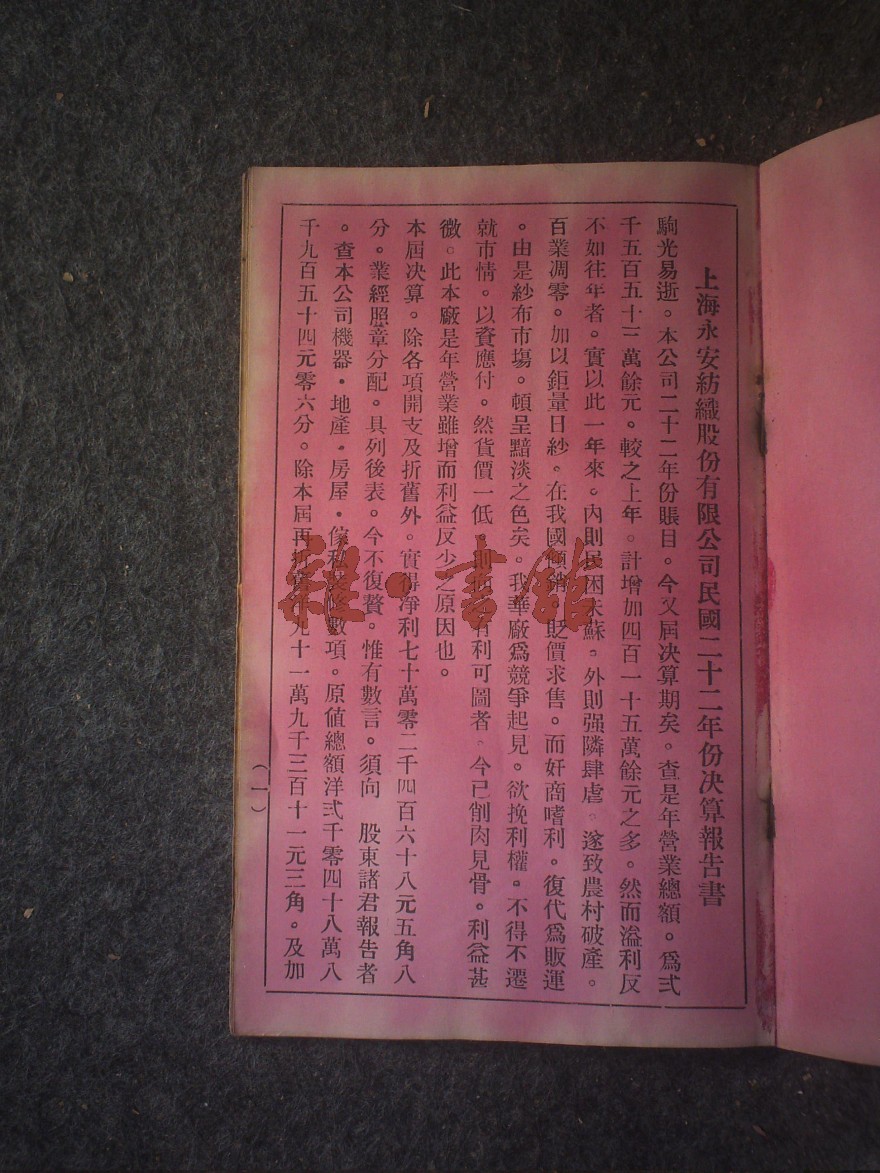 上海永安紡織股份有限公司民國二十二年份决算報告書
駒光易逝。本公司二十二年份賬目。今又屆决算期矣。查是年營業總額。爲弍
千五百五十三萬餘元。較之上年。計增加四百一十五萬餘元之多。然而溢利反
不如往年者。實以此一年來。內則民困未蘇。外則强隣肆虐。遂致農村破產。
百業凋零。加以鉅量日紗。在我國傾銷。貶價求售。而奸商嗜利。復代爲販運
。由是紗布市塲。頓呈黯淡之色矣。我華廠爲競爭起見。欲挽利權。不得不遷
就市情。以資應付。然貨價一低。則有利可圖者。今已削肉見骨。利益甚
微。此本廠是年營業雖增而利益反少之原因也。
本屆决算。除各項開支及折舊外。實得淨利七十萬零二千四百六十八元五角八
分。業經照章分配。具列後表。今不復贅。惟有數言。須向 股東諸君報告者
。查本公司機器・地產・房屋・傢私數項。原値總額洋弍千零四十八萬八
千九百五十四元零六分。除本屆再折九十一萬九千三百十一元三角。及加
(一)
雜・書館